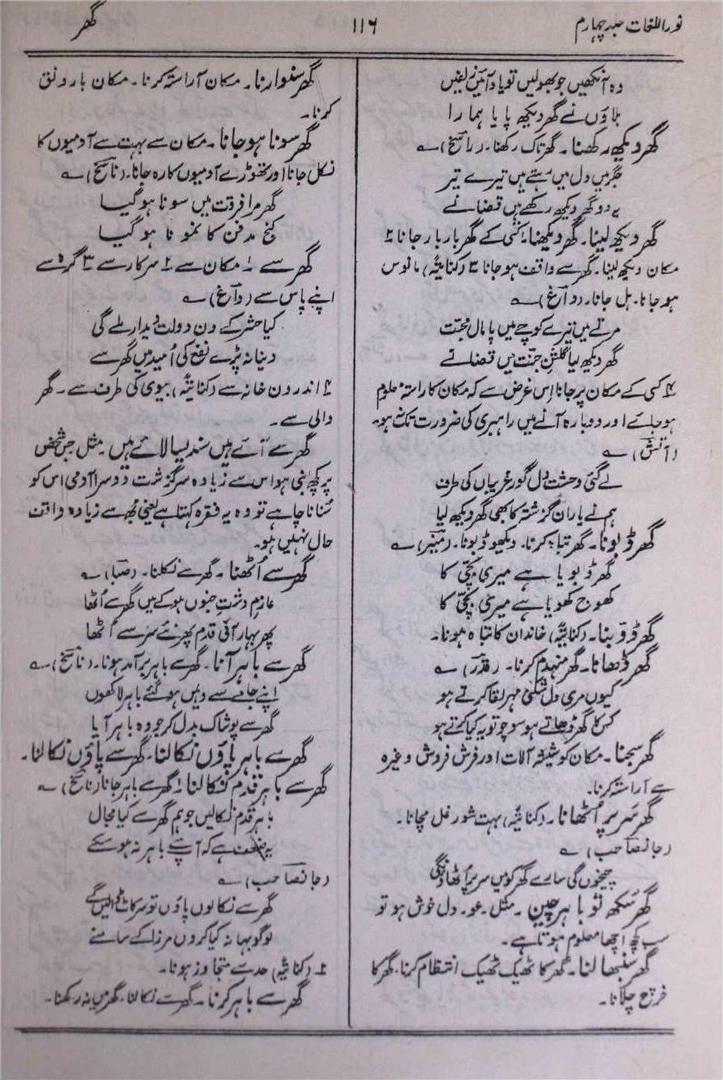 نور اللغات جلد چہارم
۱۱۶
گھر
وہ آنکھیں جو بھولیں تو یاد آئیں زلفیں
بلاؤں نے گھر دیکھ پایا ہمارا
گھر دیکھ رکھنا۔ گھر تاک رکھنا۔ (راسخ) ؎
جگر میں دل میں بستے ہیں تیرے تیر
یہ دو گھر دیکھ رکھے ہیں قضا نے
گھر دیکھ لینا۔ گھر دیکھنا۔ کسی کے گھر بار بار جانا ۲
مکان دیکھ لینا۔ گھر سے واقف ہو جانا ۳ (کنایۃً) مانوس
ہو جانا۔ ہل جانا۔ (داغ) ؎
مرتے ہیں تیرے کوچے میں پامال محبت
گھر دیکھ لیا گلشن جنت میں قضا نے
۴ کسی کے مکان پر جانا اس غرض سے کہ مکان کا راستہ معلوم
ہو جائے اور دوبارہ آنے میں راہبری کی ضرورت نہ ہو۔
(آتش) ؎
لے گئی وحشت دل گور غریباں کی طرف
ہم نے یاران گزشتہ کا بھی گھر دیکھ لیا
گھر ڈبونا۔ گھر تباہ کرنا۔ دیکھو ڈبونا۔ (منیر) ؎
گھر ڈبویا ہے میری بچی کا
کھوج کھویا ہے میری بچی کا
گھر ڈوبنا۔ (کنایۃً) خاندان کا تباہ ہونا۔
گھر ڈھانا۔ گھر منہدم کرنا۔ (قدر) ؎
کیوں مری دل شکنی مہر لقا کرتے ہو
کس کا گھر ڈھاتے ہو سوچو تو یہ کیا کرتے ہو
گھر سجنا۔ مکان کو شیشہ آلات اور فرش فروش وغیرہ
سے آراستہ کرنا۔
گھر سر پر اٹھانا۔ (کنایۃً) بہت شور غل مچانا۔
(جانصاحب) ؎
چیخوں گی سارے گھر کو میں سر پر اٹھاؤنگی
گھر سکھ تو باہر چین۔ مثل۔ عو۔ دل خوش ہو تو
سب کچھ اچھا معلوم ہوتا ہے۔
گھر سنبھالنا۔ گھر کا ٹھیک ٹھیک انتظام کرنا، گھر کا
خرچ چلانا۔
گھر سنوارنا۔ مکان آراستہ کرنا۔ مکان بارونق
کرنا۔
گھر سونا ہو جانا۔ مکان سے بہت سے آدمیوں کا
نکل جانا اور تھوڑے آدمیوں کا رہ جانا۔ (ناسخ) ؎
گھر مرا فرقت میں سونا ہو گیا
کنج مدفن کا نمونا ہو گیا
گھر سے ۱ مکان سے ۲ سرکار سے ۳ گرہ سے
اپنے پاس سے (داغ) ؎
کیا حشر کے دن دولت دیدار ملے گی
دینا نہ پڑے نفع کی امید میں گھر سے
۴ اندرون خانہ سے (کنایۃً) بیوی کی طرف سے۔ گھر
والی سے۔
گھر سے آئے ہیں سندیسا لائے ہیں۔ مثل جس شخص
پر کچھ بنی ہو اس سے زیادہ سرگزشت دوسرا آدمی اس کو
سنانا چاہے تو وہ یہ فقرہ کہتا ہے یعنی مجھ سے زیادہ واقف
حال نہیں ہو۔
گھر سے اٹھنا۔ گھر سے نکلنا۔ (صبا) ؎
عازم دشت جنوں ہو کے میں گھر سے اٹھا
پھر بہار آئی قدم پھر نئے سر سے اٹھا
گھر سے باہر آنا۔ گھر سے باہر برآمد ہونا۔ (ناسخ) ؎
اپنے جامے سے وہیں ہو گئے باہر لاکھوں
گھر سے پوشاک بدل کر جو وہ باہر آیا
گھر سے باہر پاؤں نکالنا۔ گھر سے پاؤں نکالنا۔
گھر سے باہر قدم نکالنا ۱ گھر سے باہر جانا (ناسخ) ؎
باہر قدم نکالیں جو ہم گھر سے کیا مجال
ضعف ہے کہ آپے سے باہر نہ ہو سکے
(جانصاحب) ؎
گھر سے نکالوں پاؤں تو سر کاٹ ڈالیں گے
لوگو بہانہ کیا کروں مرزا کے سامنے
۲ (کنایۃً) حد سے متجاوز ہونا۔
گھر سے باہر کرنا۔ گھر سے نکالنا، گھر میں نہ رکھنا۔